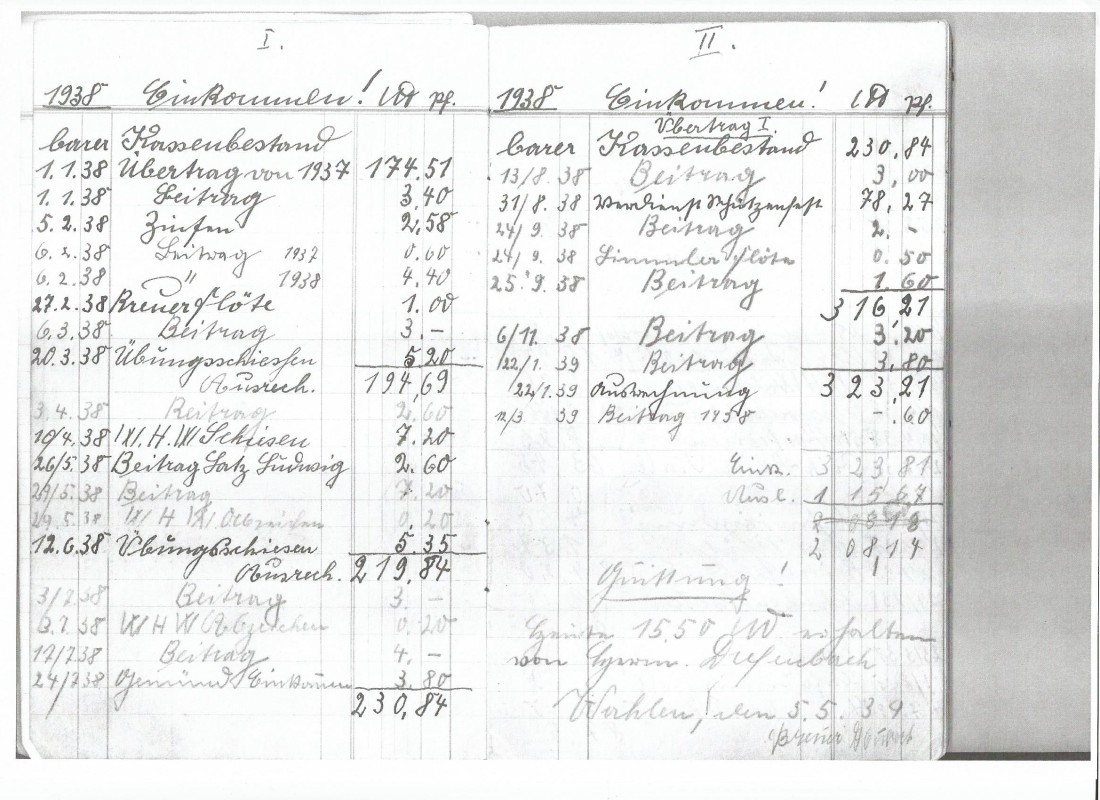 I.
1938 Einkommen! RM Pf.
barer Kassenbestand
1.1.38 Übertrag von 1937 174.51
1.1.38 Beitrag 3,40
5.2.38 Zinsen 2,58
6.2.38 Beitrag 1937 0.60
6.2.38 " 1938 4.40
27.2.38 Kreuer Flöte 1.00
6.3.38 Beitrag 3.–
20.3.38 Übungsschiessen 5.20
Ausrech. 194,69
3.4.38 Beitrag 2.60
10/4.38 W.H.W. Schiesen 7.20
26/5.38 Beitrag Latz Ludwig 2.60
29/5.38 Beitrag 7.20
29.5.38 W H W Abzeichen 0.20
12.6.38 Übungsschiesen 5.35
Ausrech. 219,84
3/7.38 Beitrag 3.–
3.7.38 W H W Abzeichen 0.20
17/7.38 Beitrag 4.–
24/7.38 Gemünd Einkommen 3.80
230,84
II.
1938 Einkommen! RM Pf.
Übertrag I.
barer Kassenbestand 230,84
13/8.38 Beitrag 3,00
31/8.38 Verdienst Schützenfest 78,27
24/9.38 Beitrag 2.–
24/9.38 Simmler Flöte 0.50
25.9.38 Beitrag 1.60
316,21
6/11.38 Beitrag 3.20
22/1.39 Beitrag 3.80
22/1.39 Ausrechnung 323,21
12/3 39 Beitrag 1938 –.60
Eink. 323.81
Ausl. 115 67
208,14
Quittung!
Heute 15,50 RM erhalten
von Herm. Diefenbach
Wahlen, den 5.5.39